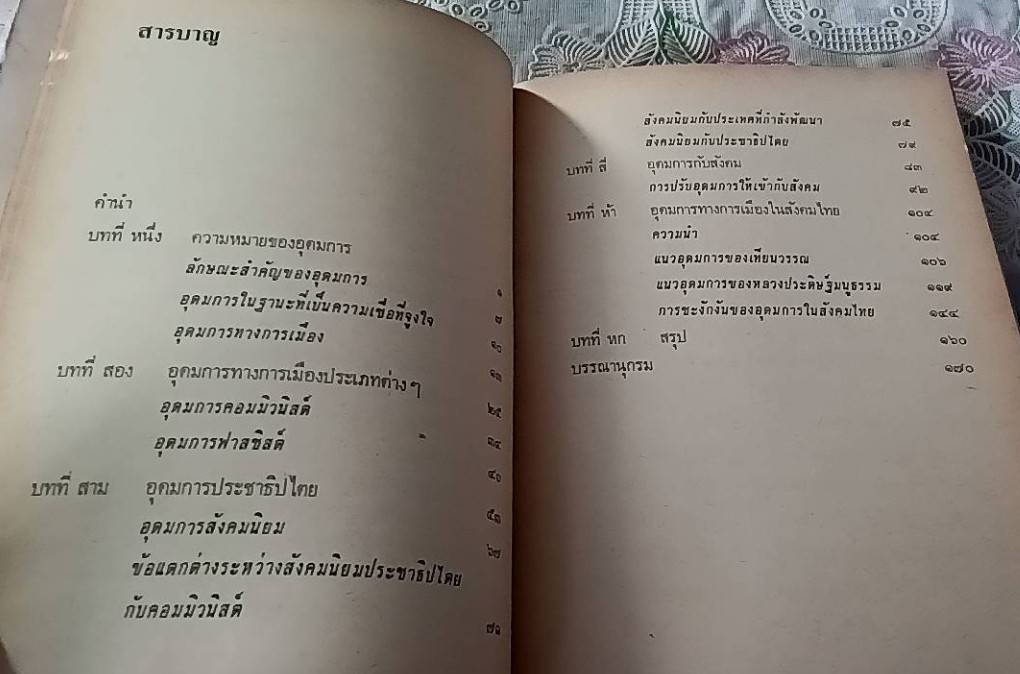 สารบาญ
คำนำ
บทที่ หนึ่ง ความหมายของอุดมการ ๑
ลักษณะสำคัญของอุดมการ ๘
อุดมการในฐานะที่เป็นความเชื่อที่จูงใจ ๑๐
อุดมการทางการเมือง ๑๓
บทที่ สอง อุดมการทางการเมืองประเภทต่างๆ ๒๕
อุดมการคอมมิวนิสต์ ๓๔
อุดมการฟาสซิสต์ ๔๐
บทที่ สาม อุดมการประชาธิปไตย ๕๓
อุดมการสังคมนิยม ๖๗
ข้อแตกต่างระหว่างสังคมนิยมประชาธิปไตย
กับคอมมิวนิสต์ ๗๑
สังคมนิยมกับประเทศที่กำลังพัฒนา ๗๕
สังคมนิยมกับประชาธิปไตย ๗๙
บทที่ สี่ อุดมการกับสังคม ๘๓
การปรับอุดมการให้เข้ากับสังคม ๙๒
บทที่ ห้า อุดมการทางการเมืองในสังคมไทย ๑๐๔
ความนำ ๑๐๔
แนวอุดมการของเทียนวรรณ ๑๐๖
แนวอุดมการของหลวงประดิษฐ์มนูธรรม ๑๑๙
การชะงักงันของอุดมการในสังคมไทย ๑๔๔
บทที่ หก สรุป ๑๖๐
บรรณานุกรม ๑๗๐